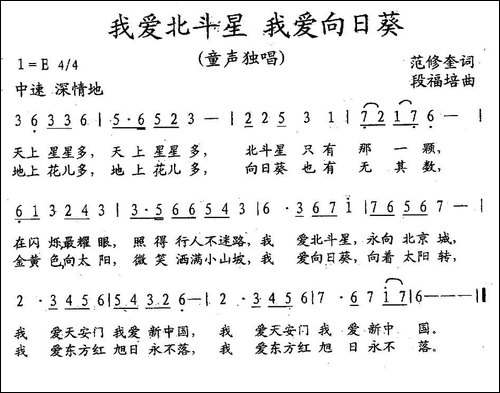 我爱北斗星 我爱向日葵
(童声独唱)
1=E 4/4
范修奎词
中速 深情地
段福培曲
3 6 3 3 6 | 5·6 5 2 3 — | 2 2 5 3 1 | 7 2 1 7 6 — |
天上 星星多, 天上 星星多, 北斗星 只有 那一颗,
地上 花儿多, 地上 花儿多, 向日葵 也有 无其数,
6 1 3 2 4 3 | 3·5 6 6 5 4 3 | 6 · 3 6 7 1 | 7 6 7 5 6 5 · |
在闪 烁最耀 眼, 照得 行人不迷路, 我 爱北斗星, 永向 北京 城,
金黄 色向太 阳, 微笑 洒满小山坡, 我 爱向日葵, 向着 太阳 转,
2 · 3 4 5 6 | 5 4 3 2 6 — | 2 · 3 4 5 6 | 7 6 · 1 7 | 6 — — — ‖
我 爱天安门 我爱 新中国, 我 爱天安门 我 爱 新中 国。
我 爱东方红 旭日 永不落, 我 爱东方红 旭 日 永不 落。